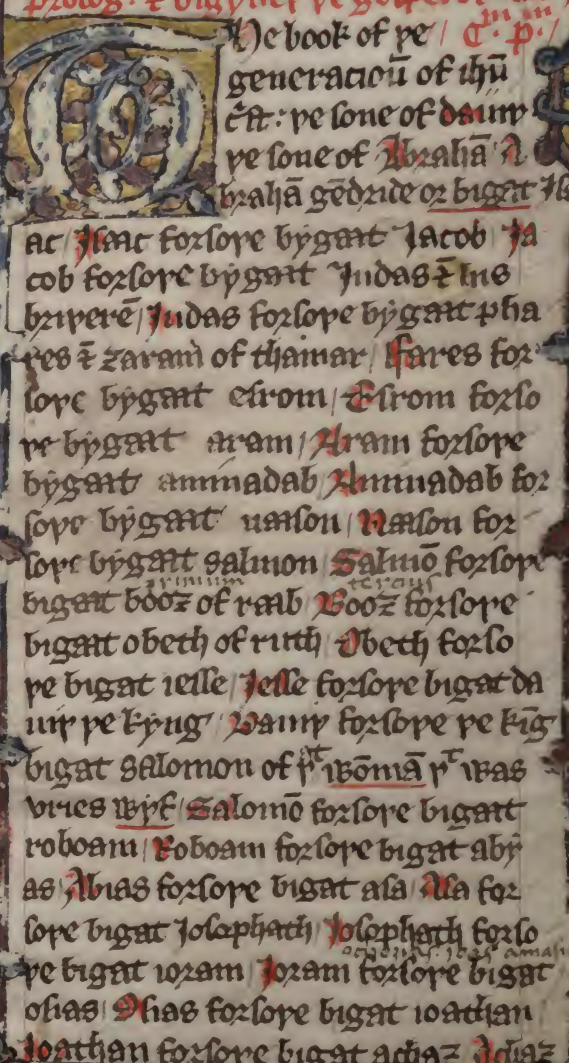 prolog: & bigyneþ þe gospel
He book of þe / Cm. p̊m./
generacioū of ihū
c̄st: þe sone of dauiþ
þe sone of Abrahā A
brahā gēdride or bigat Isa
ac / Isaac forsoþe bygaat Jacob / Ja
cob forsoþe bygaat Judas & his
briþerē / Judas forsoþe bygaat pha
res & zaram of thamar / Fares for
soþe bygaat esrom / Esrom forso
þe bygaat aram / Aram forsoþe
bygaat aminadab / Amynadab for
soþe bygaat naason / Naason for
soþe bygaat salmon / Salmō forsoþe
primum tercius
bigaat booz of raab / Booz forsoþe
bigaat obeth of ruth / Obeth forso
þe bigat iesse / Jesse forsoþe bigat da
uiþ þe kyng / Dauiþ forsoþe þe kīg
bigat salomon of þt wōmā þt was
vries wyf / Salomō forsoþe bigaat
roboam / Roboam forsoþe bigat aby
as / Abias forsoþe bigat asa / Asa for
soþe bigat Josaphath / Josaphath forso
ochosias. ioas amasi
þe bigat ioram / Joram forsoþe bigat
osias / Osias forsoþe bigat ioathan
Joathan forsoþe bigat achaz / Achaz